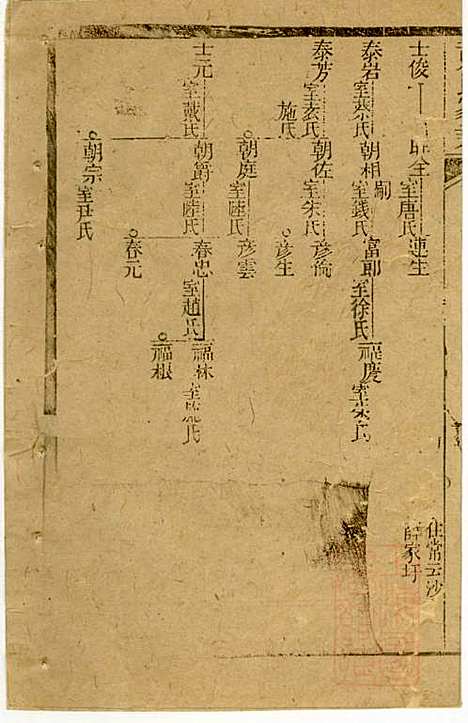 士俊
室唐氏
連生
住常云沙
薛家圩
泰岩
室蔡氏
朝相
嗣
室錢氏
富郎
室徐氏
福慶
室宋氏
泰芳
室玄氏
施氏
朝佐
室朱氏
彦倫
彦生
朝庭
室陸氏
彦雲
士元
室戴氏
朝爵
室陸氏
春忠
室趙氏
福林
福根
春元
朝宗
室尹氏